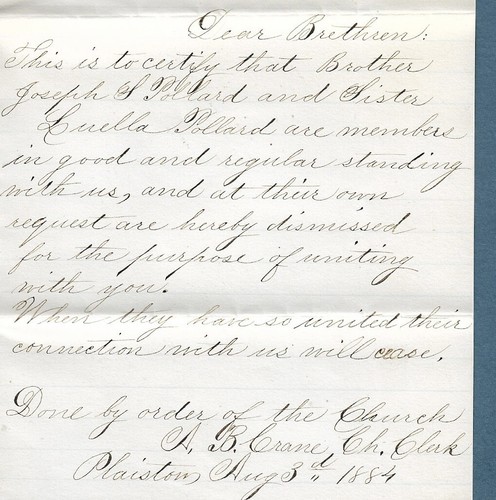 Dear Brethren:
This is to certify that Brother
Joseph S Pollard and Sister
Luella Pollard are members
in good and regular standing
with us, and at their own
request are hereby dismissed
for the purpose of uniting
with you.
When they have so united their
connection with us will cease.
Done by order of the Church
A. B. Crane, Ch. Clerk
Plaistow Aug 3d 1884